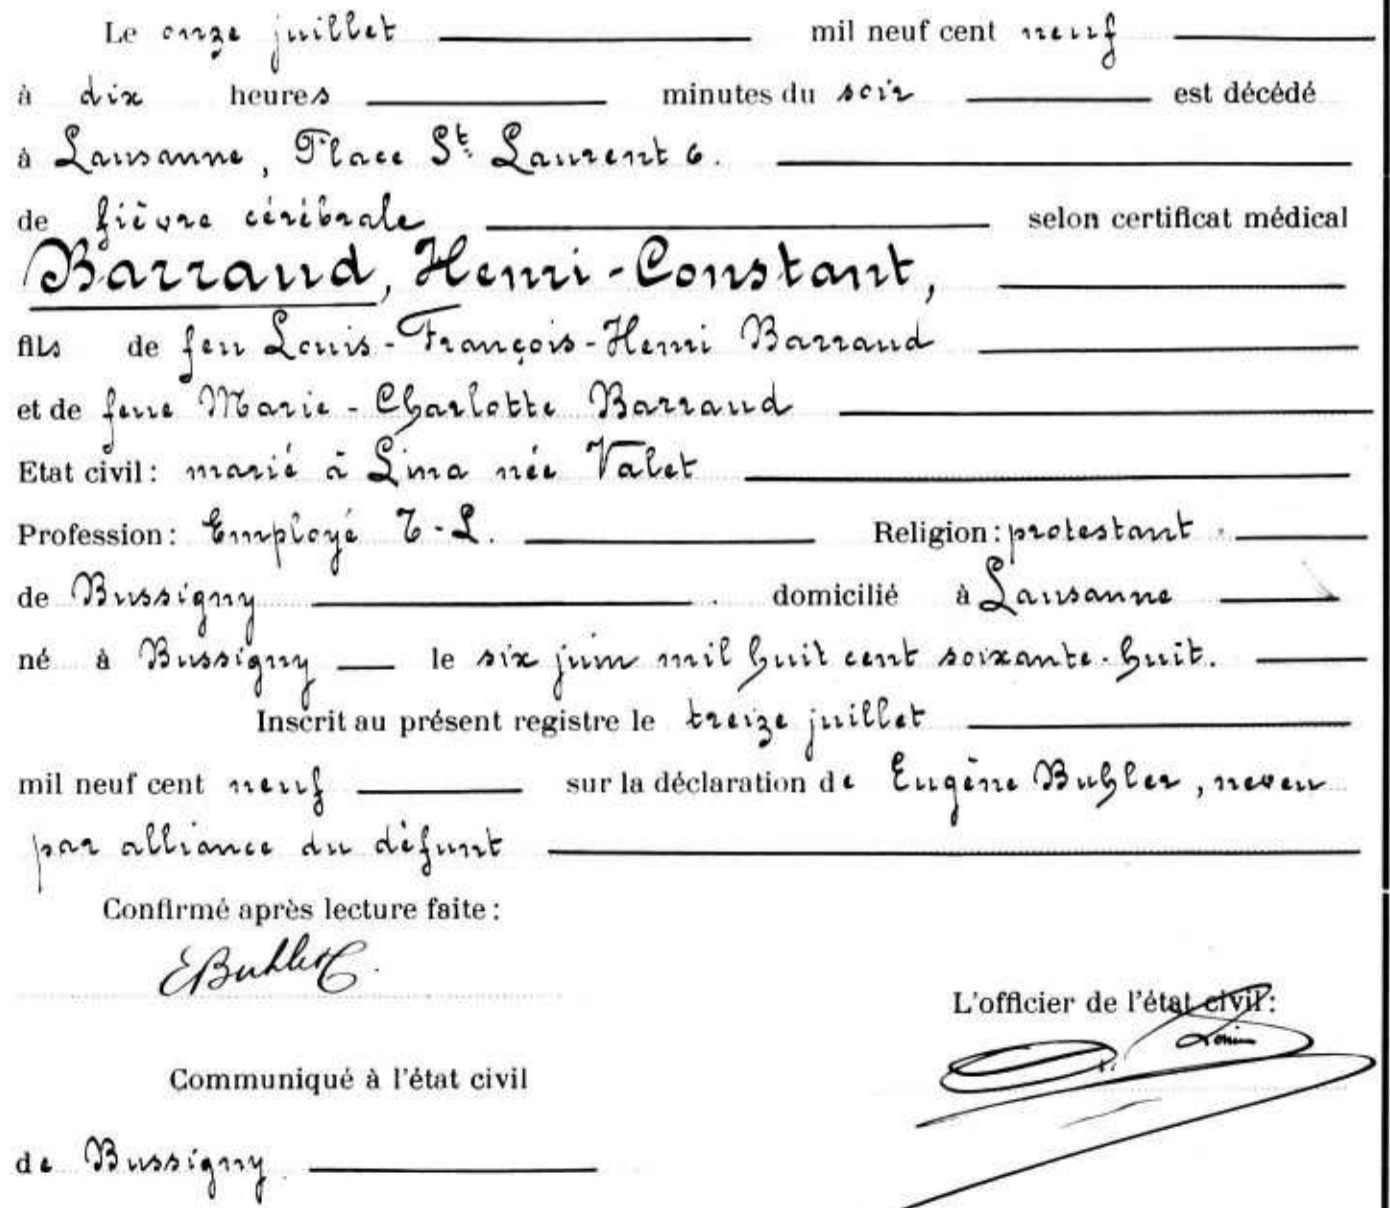 Le onze juillet mil neuf cent neuf
à dix heures minutes du soir est décédé
à Lausanne, Place St Laurent 6.
de fièvre cérébrale selon certificat médical
Barraud, Henri-Constant,
fils de feu Louis-François-Henri Barraud
et de feue Marie-Charlotte Barraud
Etat civil: marié à Lina née Valet
Profession: Employé T-L. Religion: protestant
de Bussigny domicilié à Lausanne
né à Bussigny le six juin mil huit cent soixante-huit.
Inscrit au présent registre le treize juillet
mil neuf cent neuf sur la déclaration de Eugène Buhler, neveu
par alliance du défunt
Confirmé après lecture faite:
EBuhler
L'officier de l'état civil:
Communiqué à l'état civil
de Bussigny